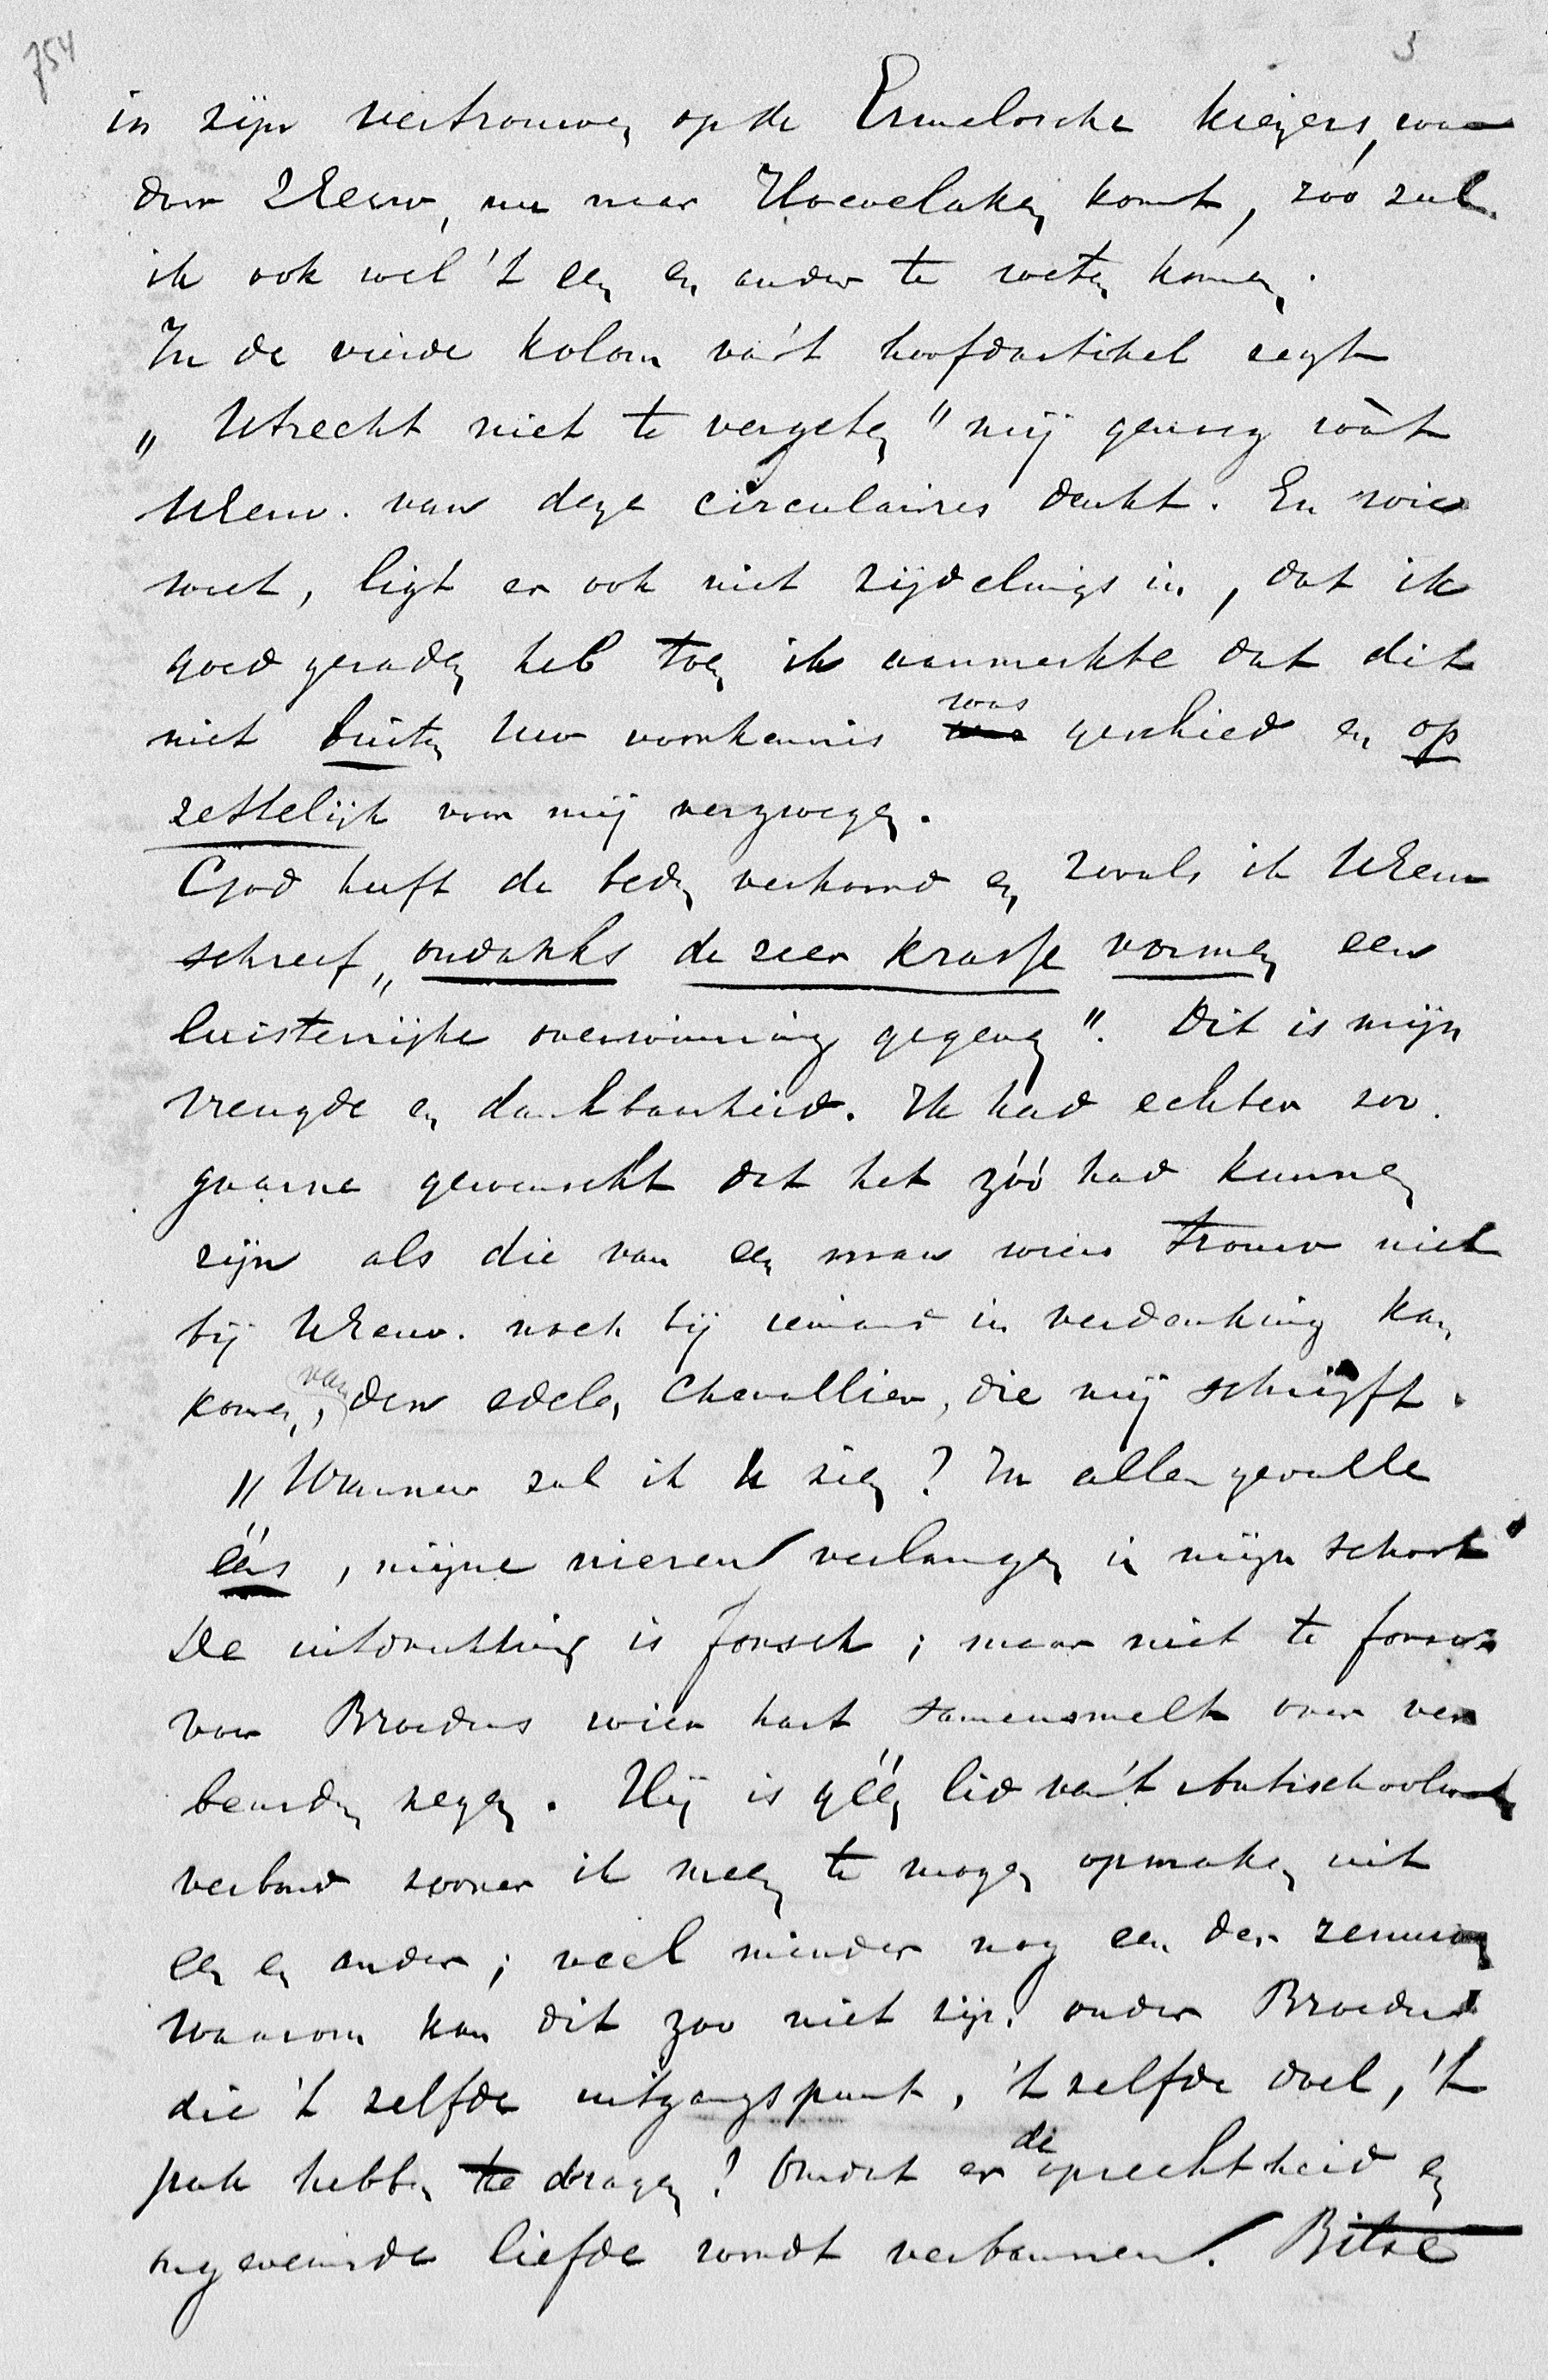 754
3
in zijn vertrouwen op de Ermelosche kiezers, waar
door UEerw, nu naar Hoevelaken komt, zóó zal
ik ook wel 't een en ander te weten komen.
In de vierde kolom va't hoofdartikel zegt
„Utrecht niet te vergeten" mij genoeg wàt
UEerw. van deze circulaires denkt. En wie
weet, ligt er ook niet zijdelings in, dat ik
goed geraden heb toen ik aanmerkte dat dit
niet buiten Uw voorkennis was geschied en op
zettelijk voor mij verzwegen.
God heeft de beden verhoord en zooals ik UEerw
schreef „ondanks de zeer krasse vormen een
luisterrijke overwinning gegeven". Dit is mijn
vreugde en dankbaarheid. Ik had echter zoo
gaarne gewenscht dat het zóó had kunnen
zijn als die van een man wiens trouw niet
bij UEerw. noch bij iemand in verdenking kan
komen, van den edelen Chevallier, die mij schrijft.
„Wanneer zal ik U zien? In allen gevalle
ééns, mijne nieren verlangen in mijn schoot"
De uitdrukking is forsch; maar niet te forsch
voor Broeders wier hart samensmelt over ver
beurden zegen. Hij is géén lid va't Antischoolwet
verbond zoover ik meen te mogen opmaken uit
een en ander; veel minder nog een der
waarom kan dit zoo niet zijn onder Broeders
die 't zelfde uitgangspunt, 't zelfde doel, 't
pak hebben te dragen? Omdat er de oprechtheid en
ongeveinsde liefde wordt verbannen. Bitse